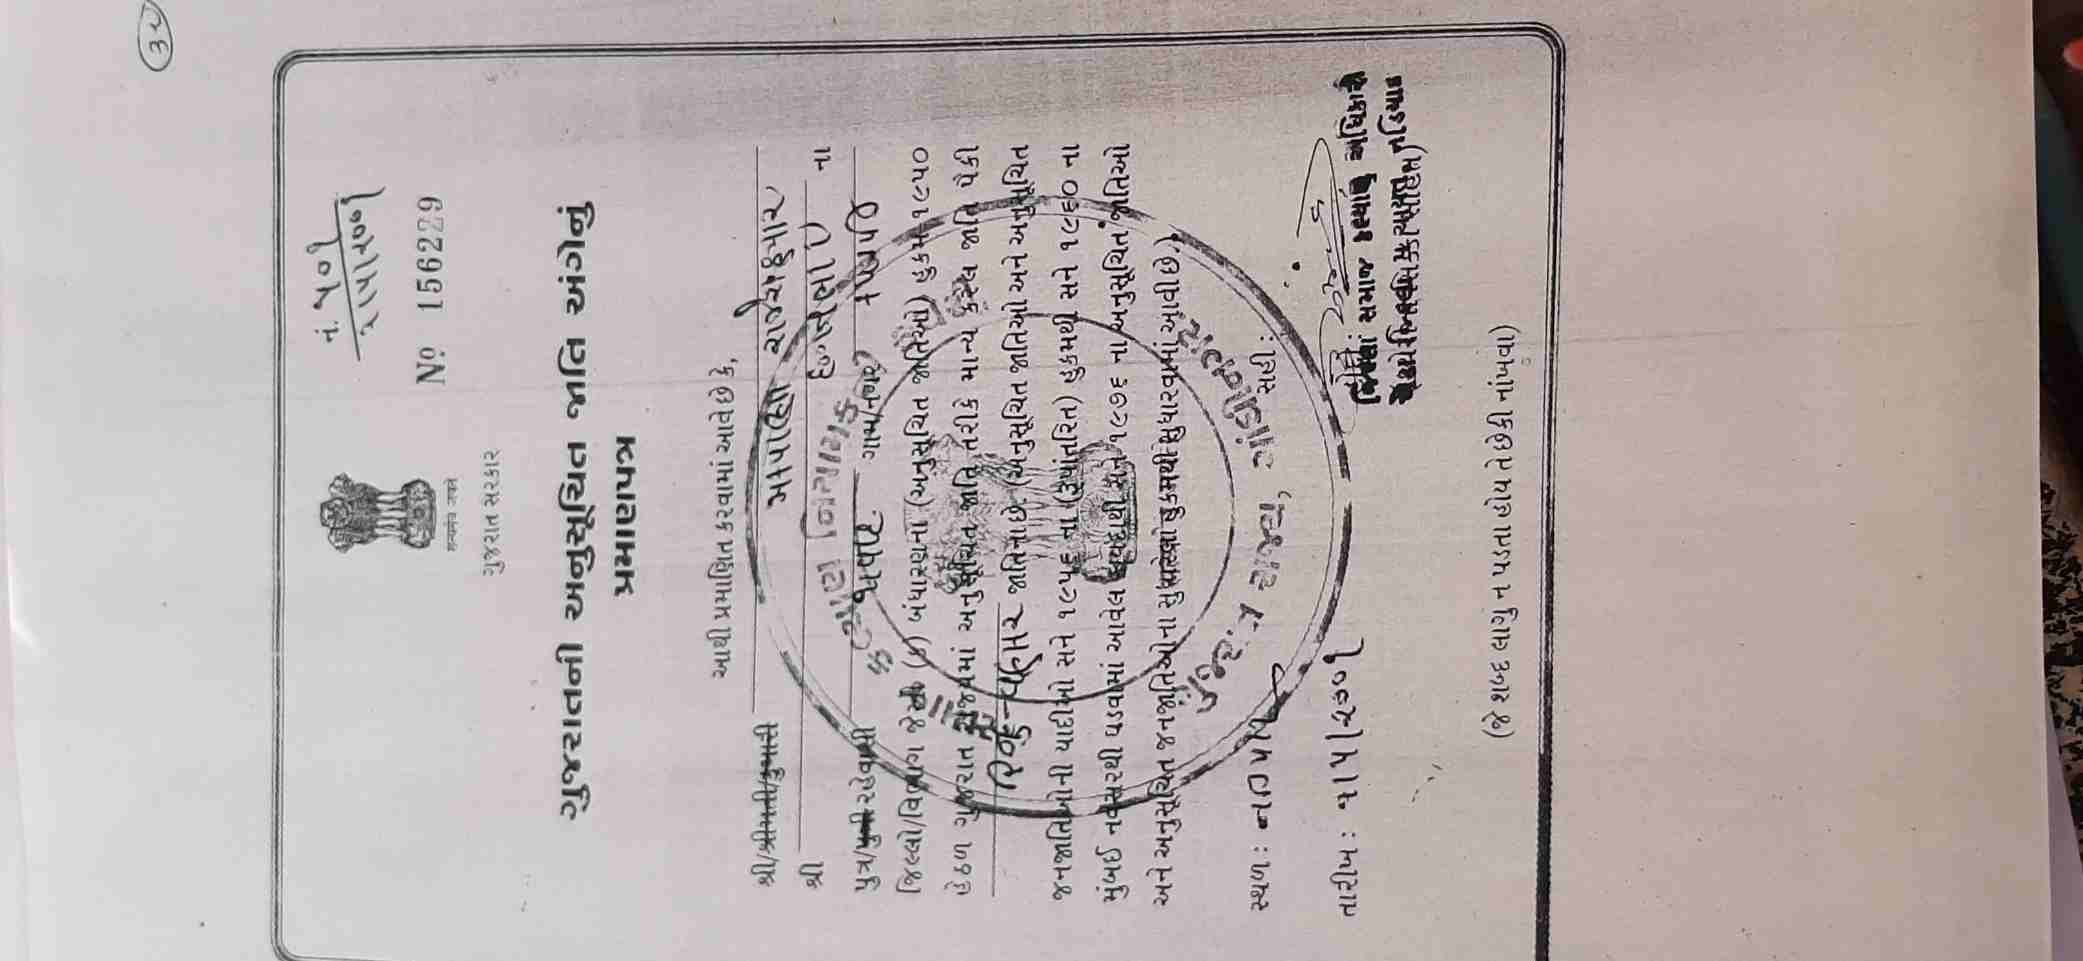 ૩૨
નં. ૫૦૧
૨/૫/૨૦૦૧
No 156229
सत्यमेव जयते
ગુજરાત સરકાર
ગુજરાતની અનુસૂચિત જાતિ અંગેનું
પ્રમાણપત્ર
આથી પ્રમાણિત કરવામાં આવે છે કે,
શ્રી/શ્રીમતી/કુમારી રાજેશકુમાર
શ્રી ના
પુત્ર/પુત્રી રહેવાસી ગામ/નગર
જિલ્લો/વિભાગ બંધારણના (અનુસૂચિત જાતિઓ) હુકમ ૧૯૫૦
હેઠળ ગુજરાત રાજ્યમાં અનુસૂચિત જાતિ તરીકે માન્ય કરેલ જાતિ પૈકી
હિન્દુ-ચમાર જાતિના છે. (અનુસૂચિત જાતિઓ અને અનુસૂચિત
જનજાતિઓની યાદીઓ સને ૧૯૫૬ ના (રૂપાંતરિત) હુકમથી સને ૧૯૬૦ ના
મુંબઇ નવેસરથી ઘડવામાં આવેલ કાયદાથી સને ૧૯૭૬ ના અનુસૂચિત જાતિઓ
અને અનુસૂચિત જનજાતિઓના સુધારેલા હુકમથી સુધારવામાં આવી છે.)
સ્થળ : સહી :
તારીખ : ૨/૫/૨૦૦૧
સમાજ કલ્યાણ અધિકારી
નડિયાદ
કલ્યાણ નિયામક
ગુજરાત રાજ્ય, ગાંધીનગર
(જે શબ્દ લાગુ ન પડતા હોય તે છેકી નાંખવા)